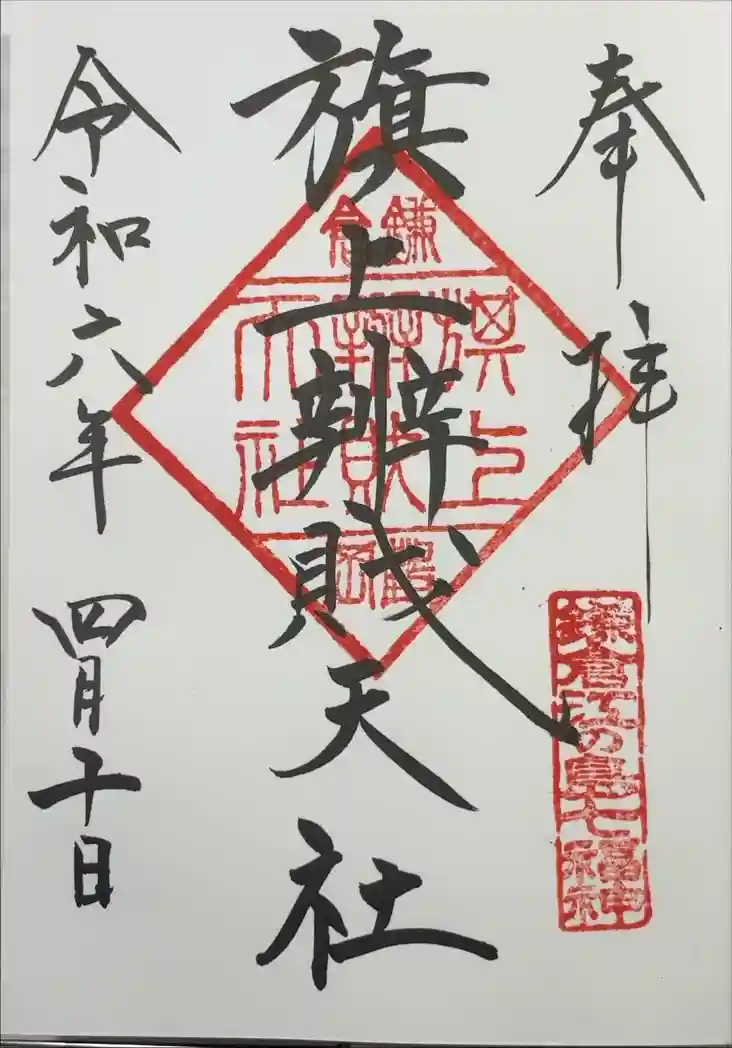 奉拝
鎌倉江の島七福神
旗上辨財天社
鎌倉
旗上
辨財
天社
令和六年 四月十日